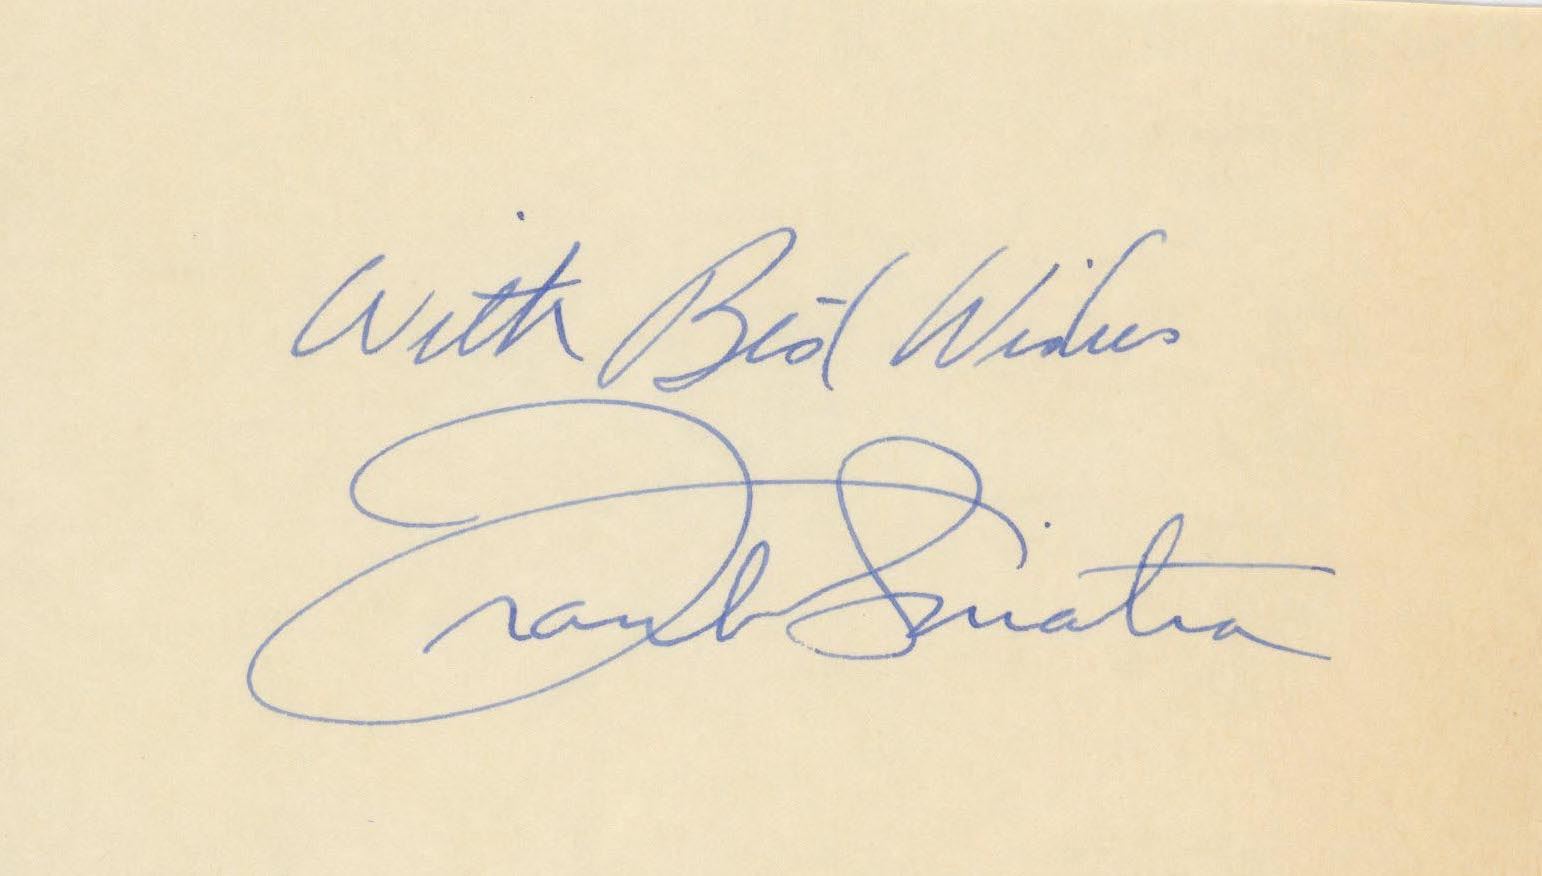 With Best Wishes
Frank Sinatra